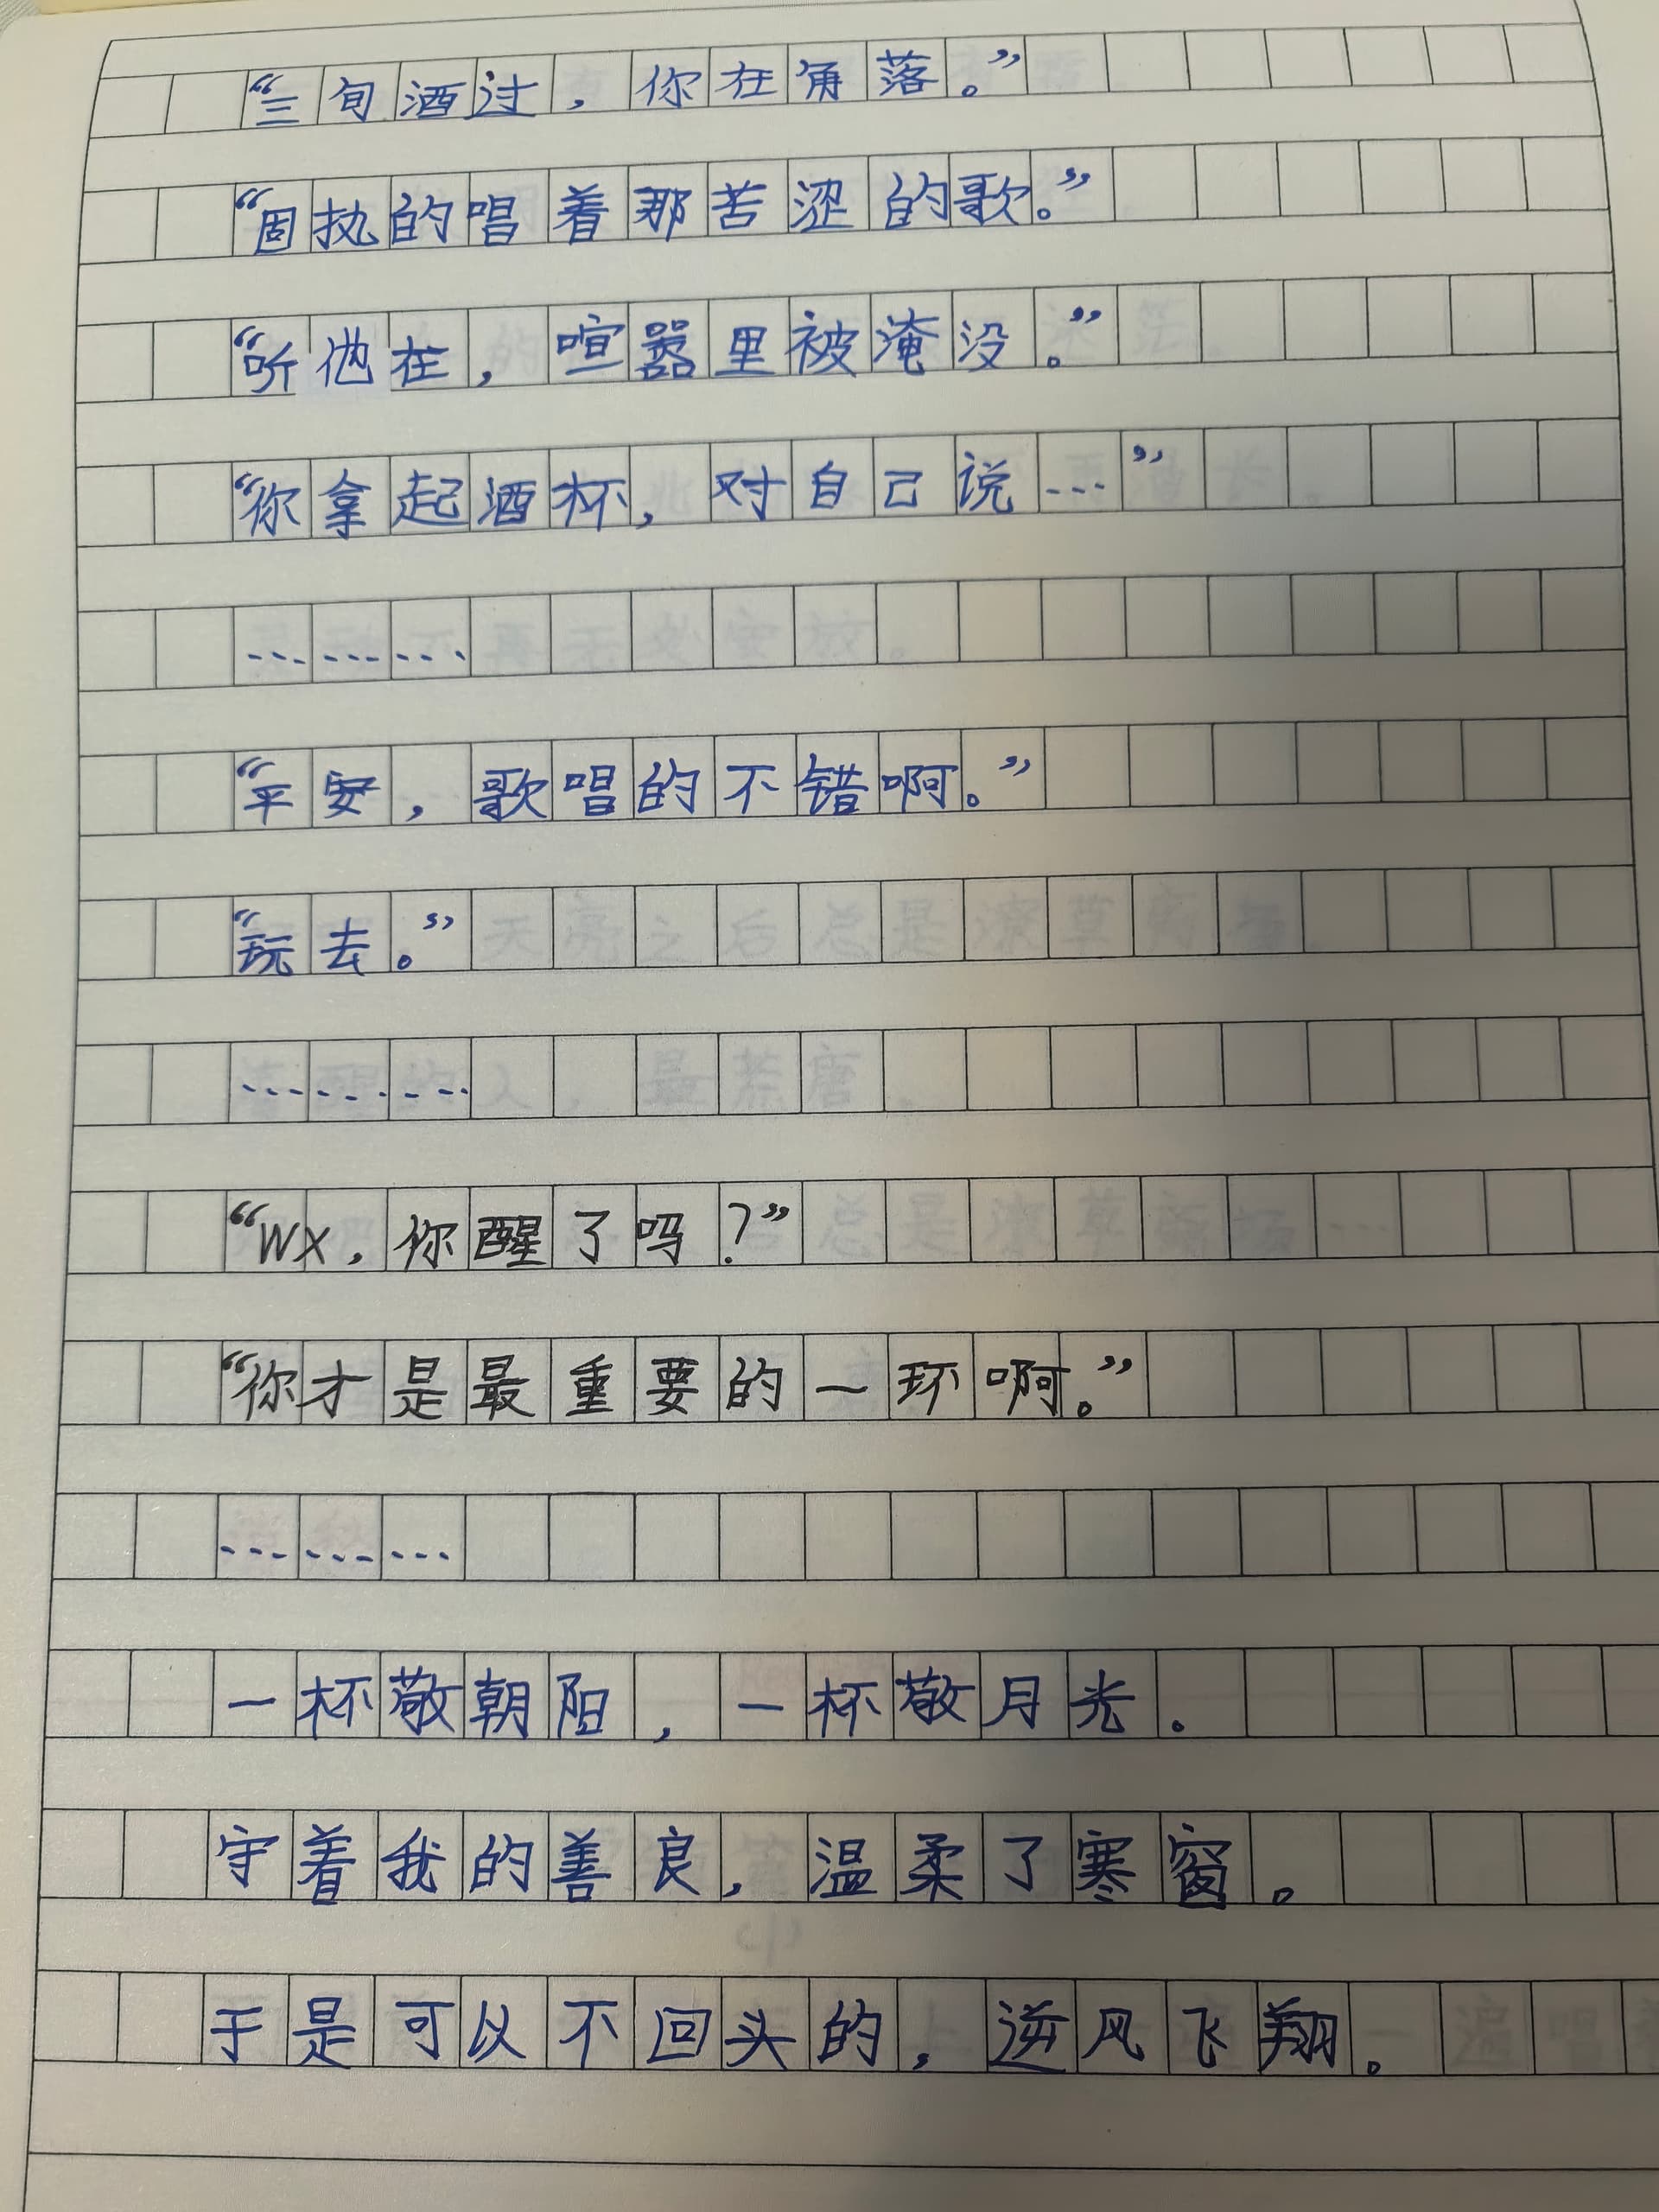 “三旬酒过，你在角落。”
“固执的唱着那苦涩的歌。”
“听他在，喧嚣里被淹没。”
“你拿起酒杯，对自己说…”
………
“平安，歌唱的不错啊。”
“玩去。”
………
“WX，你醒了吗？”
“你才是最重要的一环啊。”
………
一杯敬朝阳，一杯敬月光。
守着我的善良，温柔了寒窗。
于是可以不回头的，逆风飞翔。